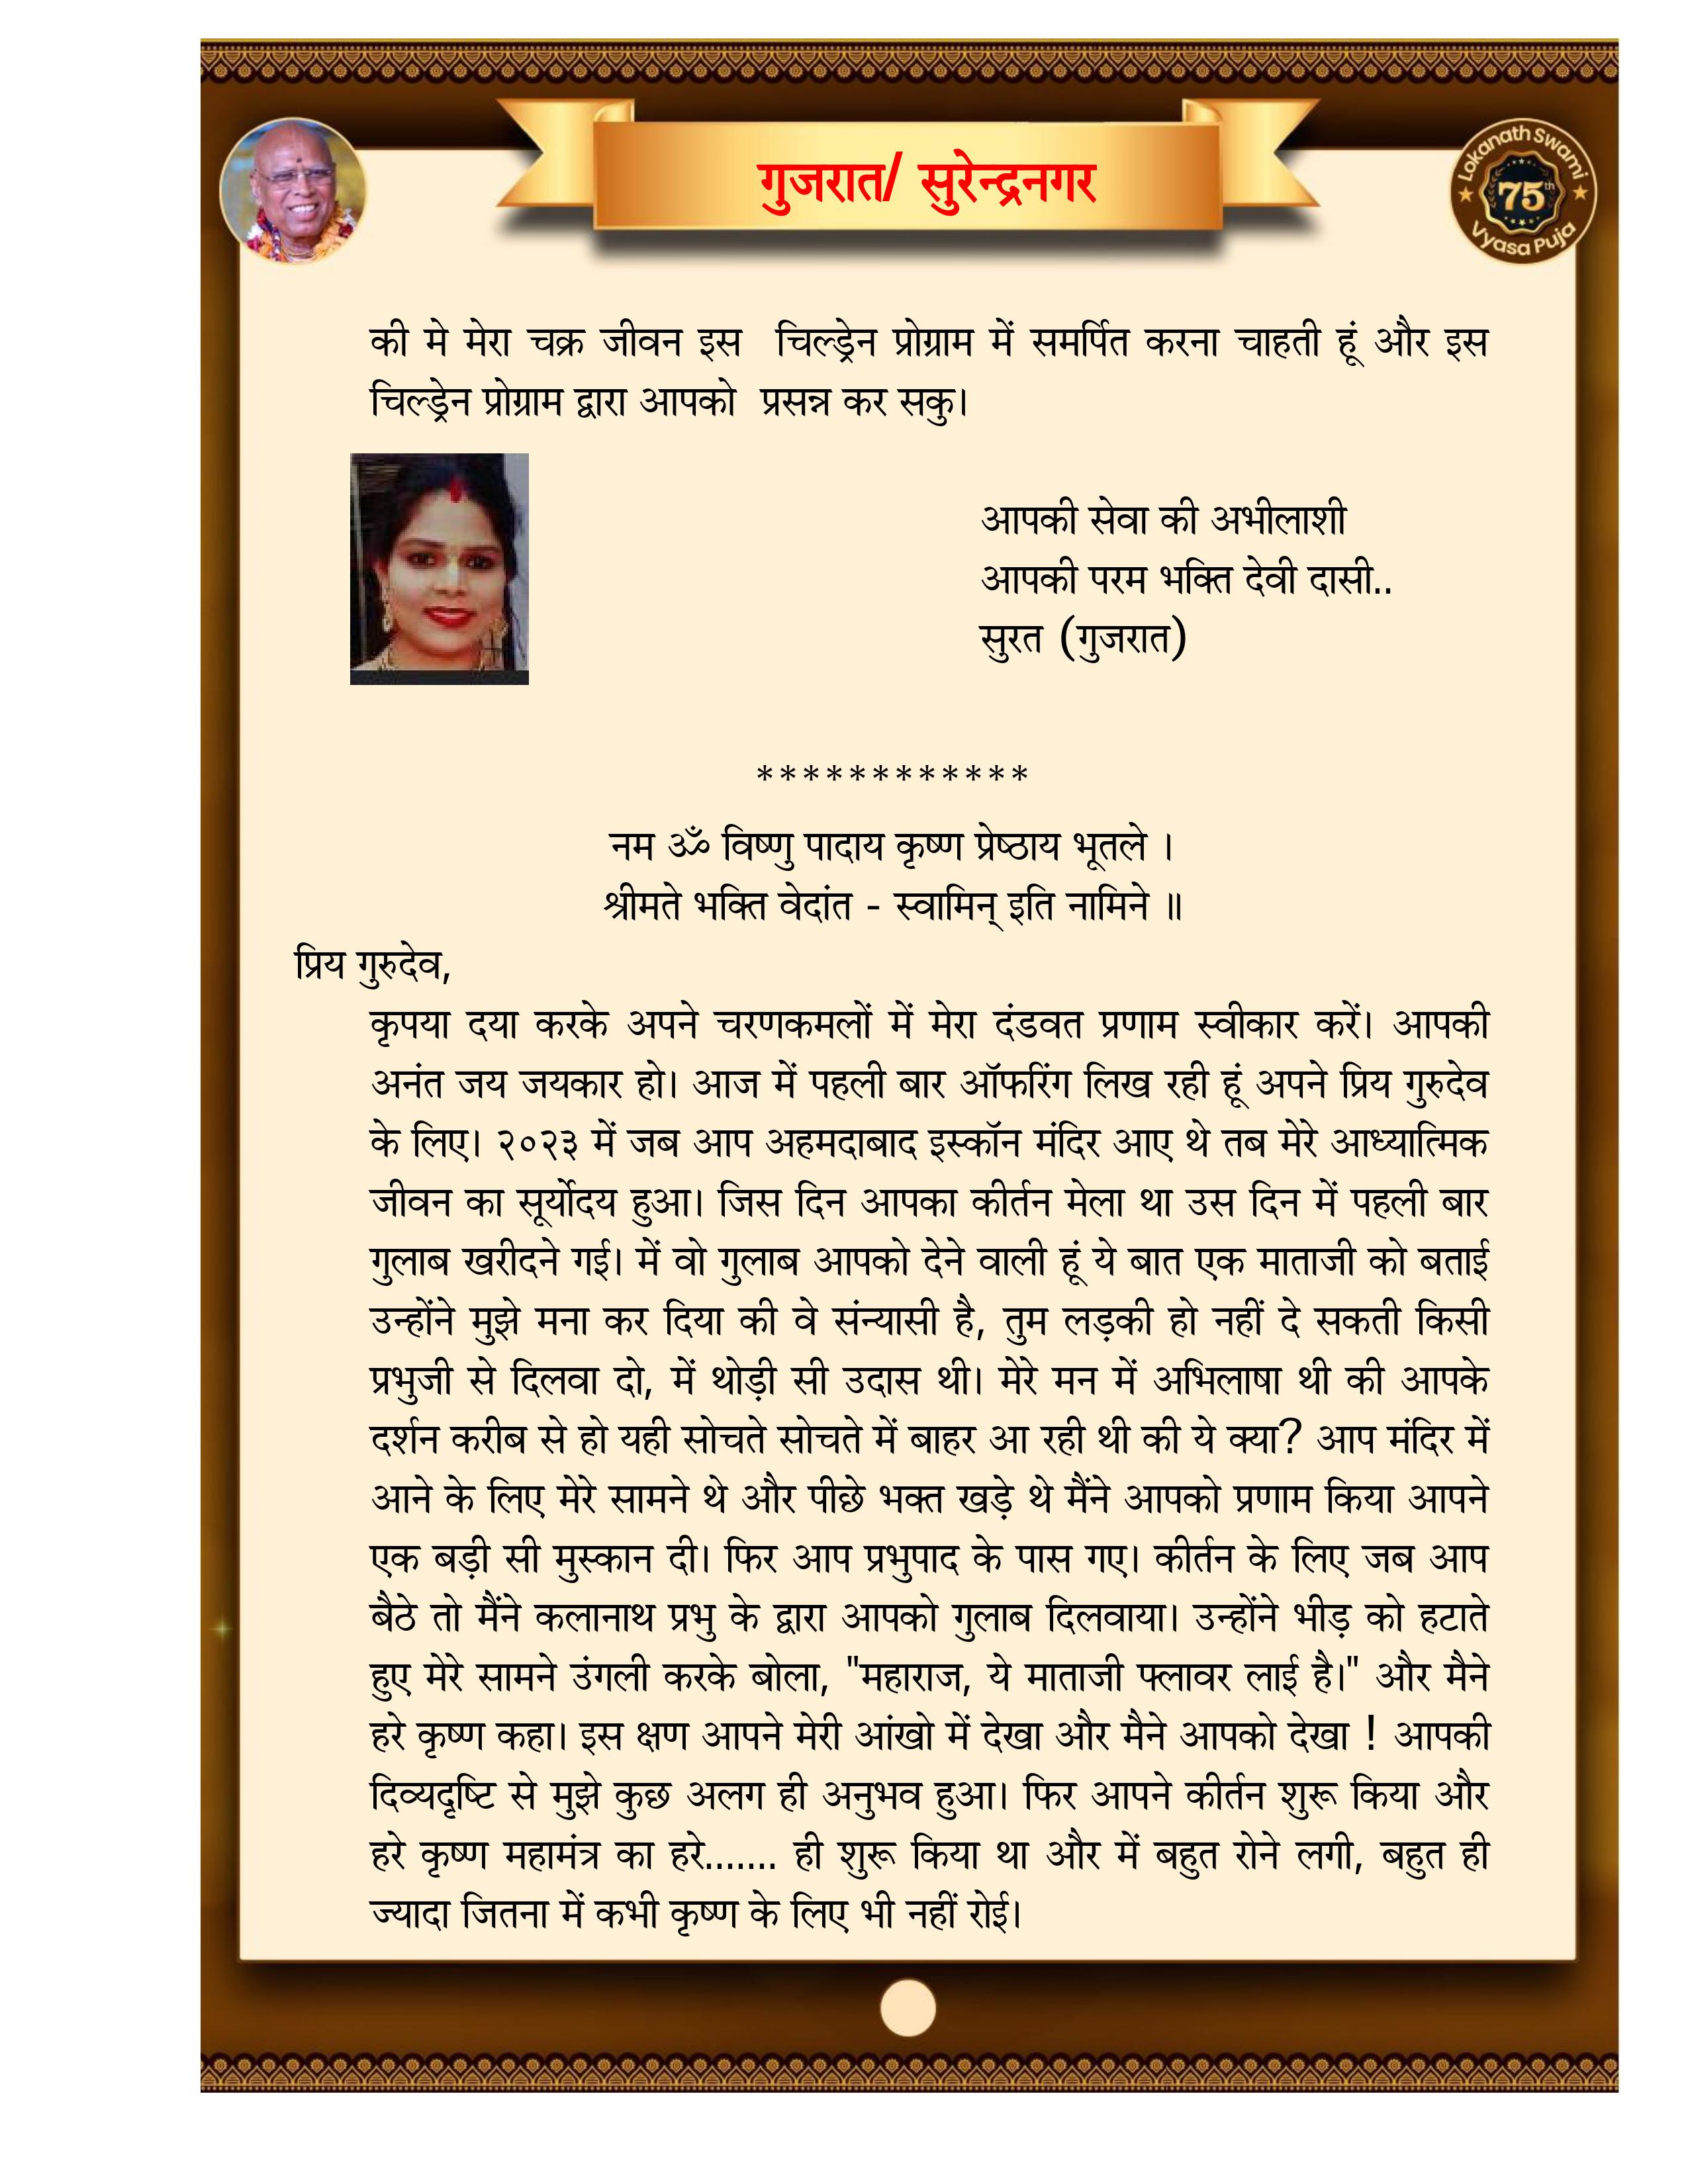 गुजरात/ सुरेन्द्रनगर
Lokanath Swami
75th
Vyasa Puja
की मे मेरा चक्र जीवन इस चिल्ड्रेन प्रोग्राम में समर्पित करना चाहती हूं और इस
चिल्ड्रेन प्रोग्राम द्वारा आपको प्रसन्न कर सकु।
आपकी सेवा की अभीलाशी
आपकी परम भक्ति देवी दासी..
सुरत (गुजरात)
************
नम ॐ विष्णु पादाय कृष्ण प्रेष्ठाय भूतले ।
श्रीमते भक्ति वेदांत - स्वामिन् इति नामिने ॥
प्रिय गुरुदेव,
कृपया दया करके अपने चरणकमलों में मेरा दंडवत प्रणाम स्वीकार करें। आपकी
अनंत जय जयकार हो। आज में पहली बार ऑफरिंग लिख रही हूं अपने प्रिय गुरुदेव
के लिए। २०२३ में जब आप अहमदाबाद इस्कॉन मंदिर आए थे तब मेरे आध्यात्मिक
जीवन का सूर्योदय हुआ। जिस दिन आपका कीर्तन मेला था उस दिन में पहली बार
गुलाब खरीदने गई। में वो गुलाब आपको देने वाली हूं ये बात एक माताजी को बताई
उन्होंने मुझे मना कर दिया की वे संन्यासी है, तुम लड़की हो नहीं दे सकती किसी
प्रभुजी से दिलवा दो, में थोड़ी सी उदास थी। मेरे मन में अभिलाषा थी की आपके
दर्शन करीब से हो यही सोचते सोचते में बाहर आ रही थी की ये क्या? आप मंदिर में
आने के लिए मेरे सामने थे और पीछे भक्त खड़े थे मैंने आपको प्रणाम किया आपने
एक बड़ी सी मुस्कान दी। फिर आप प्रभुपाद के पास गए। कीर्तन के लिए जब आप
बैठे तो मैंने कलानाथ प्रभु के द्वारा आपको गुलाब दिलवाया। उन्होंने भीड़ को हटाते
हुए मेरे सामने उंगली करके बोला, "महाराज, ये माताजी फ्लावर लाई है।" और मैने
हरे कृष्ण कहा। इस क्षण आपने मेरी आंखो में देखा और मैने आपको देखा ! आपकी
दिव्यदृष्टि से मुझे कुछ अलग ही अनुभव हुआ। फिर आपने कीर्तन शुरू किया और
हरे कृष्ण महामंत्र का हरे....... ही शुरू किया था और में बहुत रोने लगी, बहुत ही
ज्यादा जितना में कभी कृष्ण के लिए भी नहीं रोई।